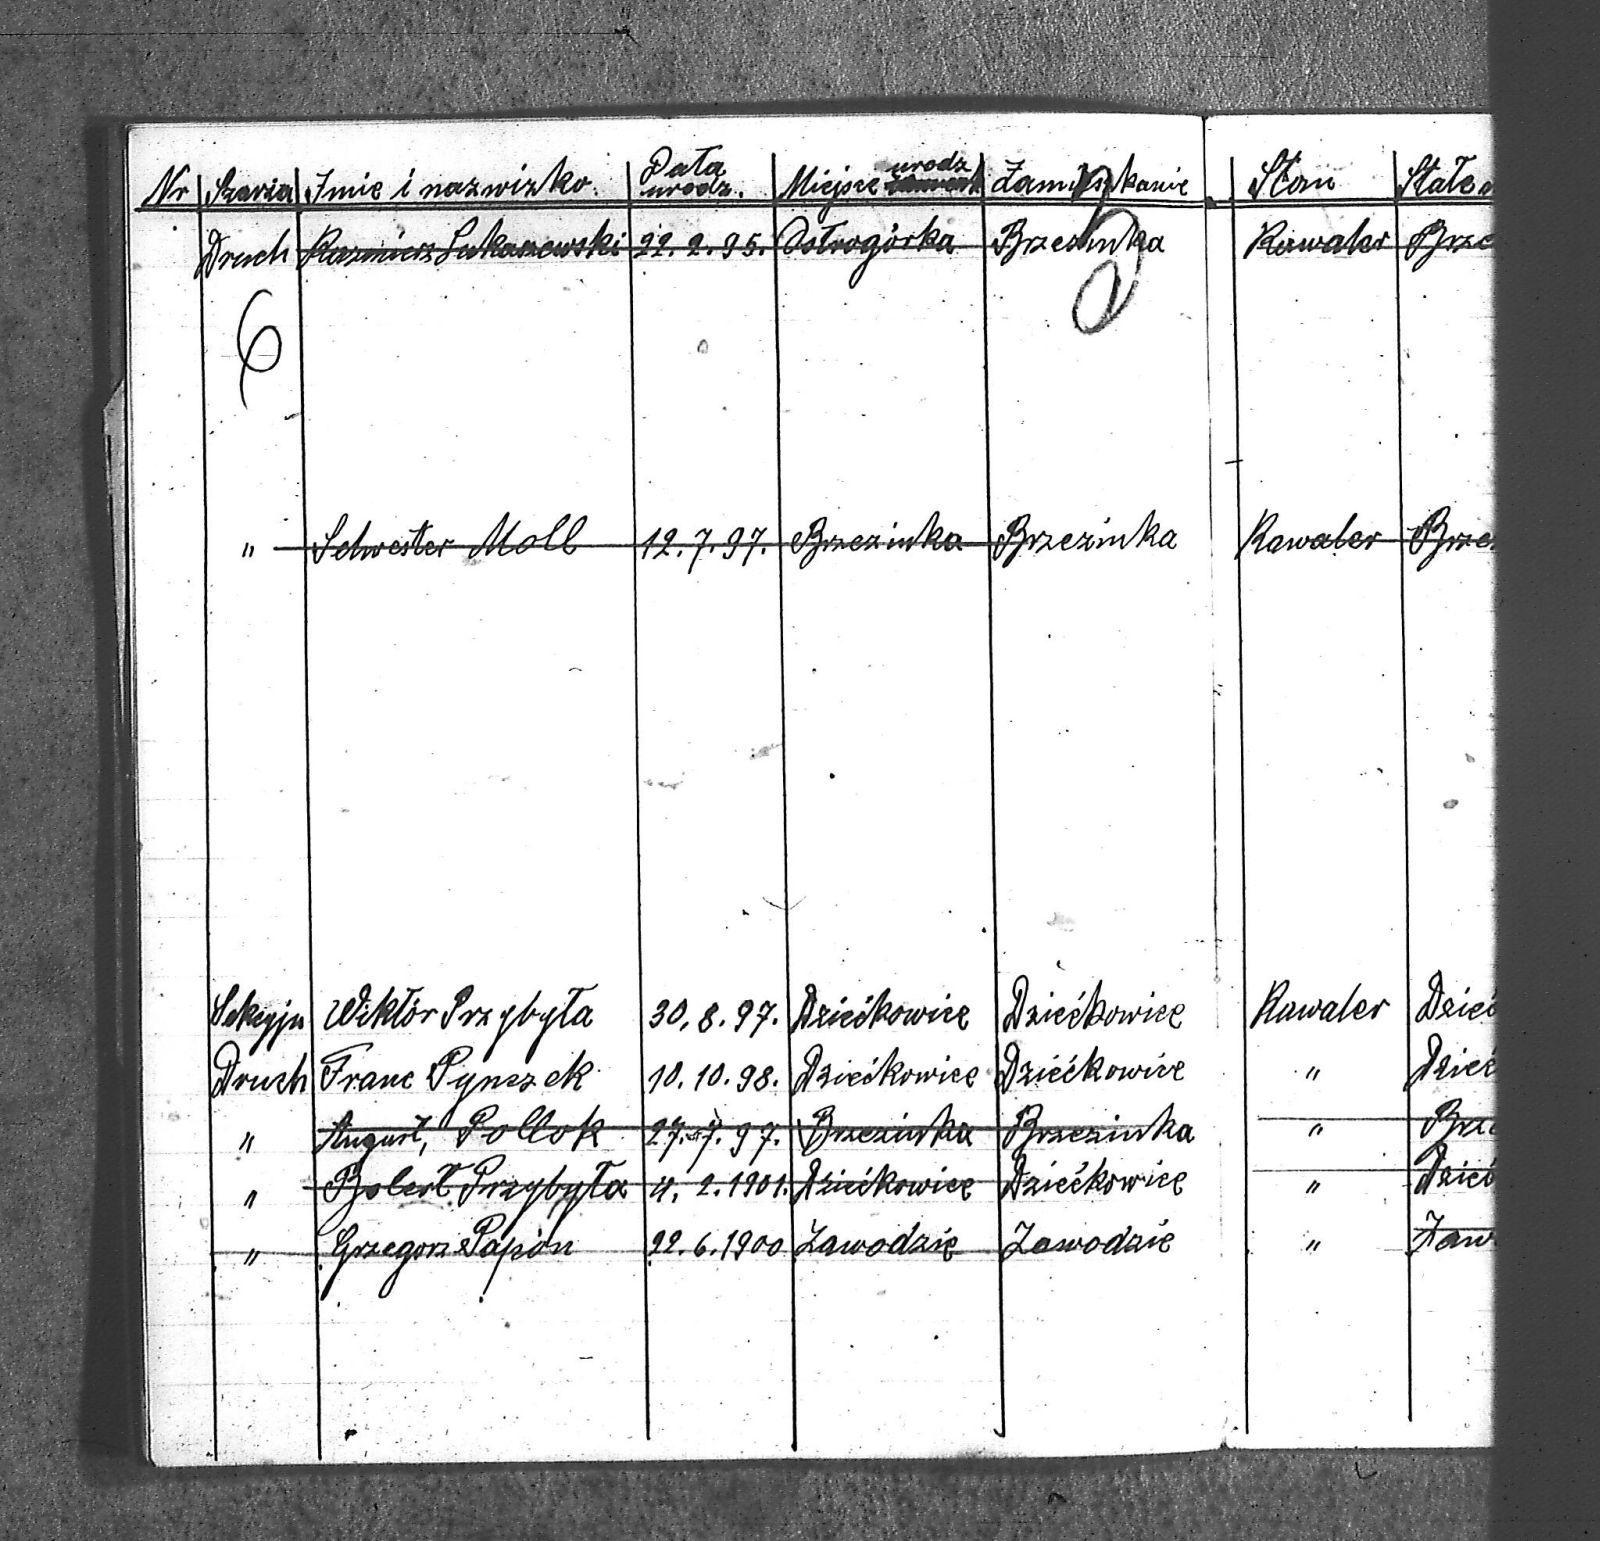 Nr Szarża Imie i nazwizko. Data urodz. Miejsce urodz Zamieszkanie Stan Stałe
Druch Kazmierz Lukaszewski 22. 2. 95. Ostrogórka Brzezinka Kawaler Brze
6
" Selwester Moll 12. 7. 97. Brzezinka Brzezinka Kawaler Brze
Sekcyjn Wiktór Przybyła 30. 8. 97. Dziećkowice Dziećkowice Kawaler Dzieć
Druch Franc Pynszek 10. 10. 98. Dziećkowice Dziećkowice " Dzieć
" August, Pollok 27. 7. 97. Brzezinka Brzezinka " Brze
" Przybyła 4. 2. 1901. Dziećkowice Dziećkowice " Dzieć
" Grzegorz Papión 22. 6. 1900 Zawodzie Zawodzie " Zaw